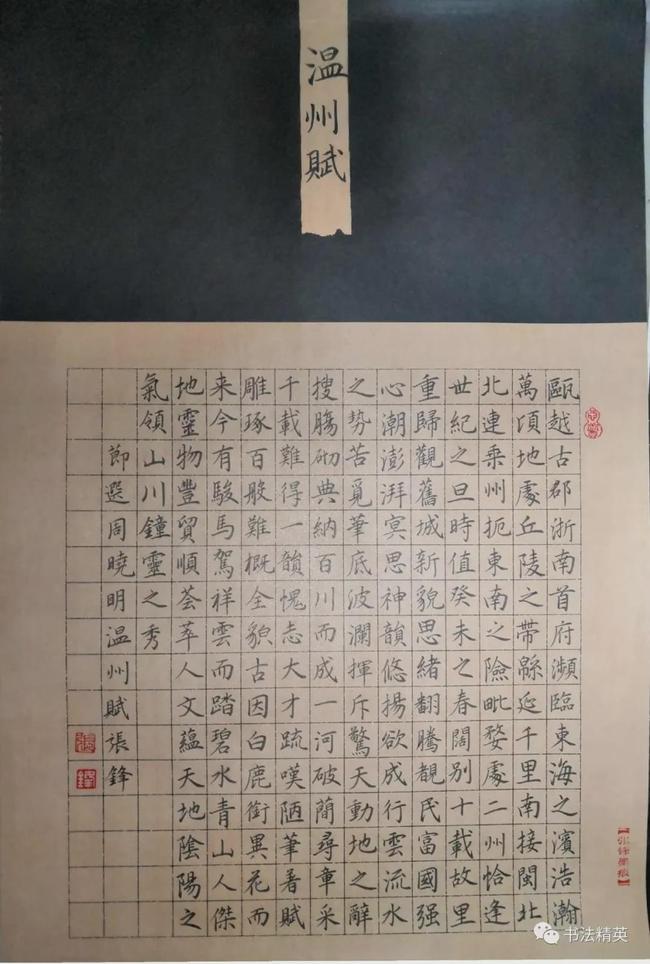 温州賦
甌越古郡浙南首府瀕臨東海之濱浩瀚
萬頃地處丘陵之帶緜延千里南接閩北
北連乘州扼東南之險毗婺處二州恰逢
世紀之旦時值癸未之春闊別十載故里
重歸觀舊城新貌思緒翻騰覩民富國强
心潮澎湃冥思神韻悠揚欲成行雲流水
之勢苦覓筆底波瀾揮斥驚天動地之辭
搜腸砌典納百川而成一河破蕳尋章采
千載難得一韻愧志大才疏嘆陋筆著賦
雕琢百般難概全貌古因白鹿銜異花而
来今有駿馬駕祥雲而踏碧水青山人傑
地靈物豐貿順薈萃人文蘊天地陰陽之
氣領山川鐘靈之秀
節選周曉明温州賦張鋒
书法精英